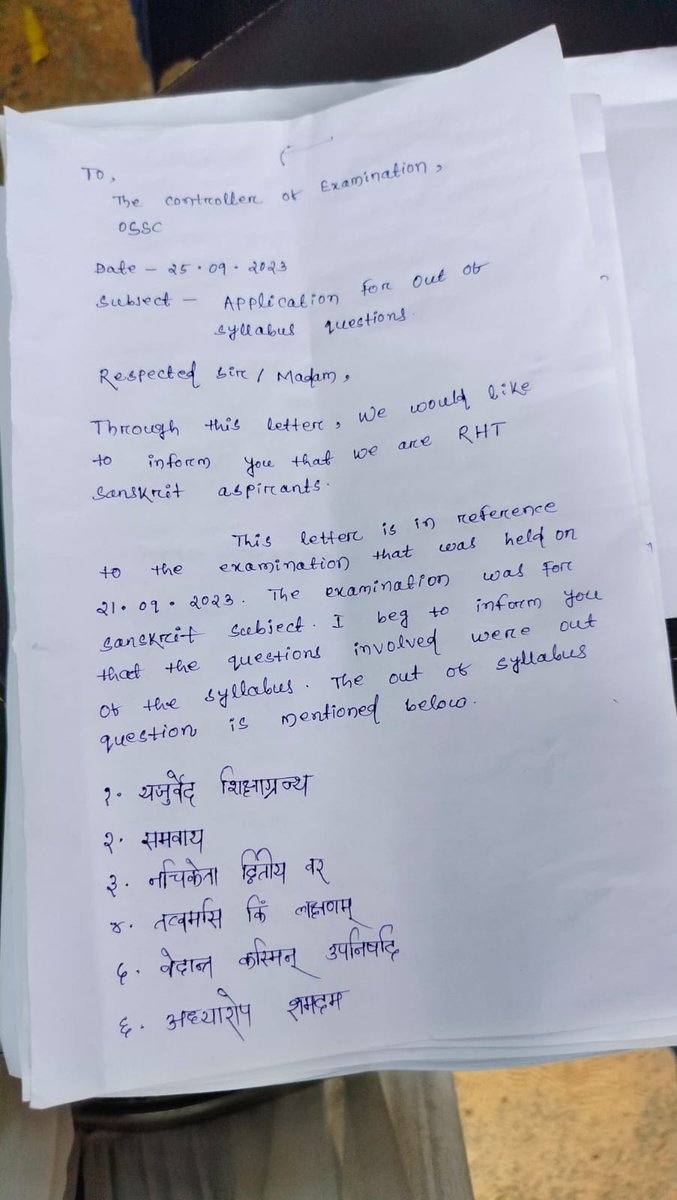 To,
The controller of Examination,
OSSC
Date - 25.09.2023
Subject - Application for out of
syllabus questions.
Respected Sir / Madam,
Through this letter, we would like
to inform you that we are RHT
Sanskrit aspirants.
This letter is in reference
to the examination that was held on
21.09.2023. The examination was for
Sanskrit Subject. I beg to inform you
that the questions involved were out
of the syllabus. The out of syllabus
question is mentioned below.
१. यजुर्वेद शिक्षाग्रन्थ
२. समवाय
३. नचिकेता द्वितीय वर
४. तत्वमसि किं लक्षणम्
५. वेदान्त कस्मिन् उपनिषदि
६. अध्यारोप शमदम